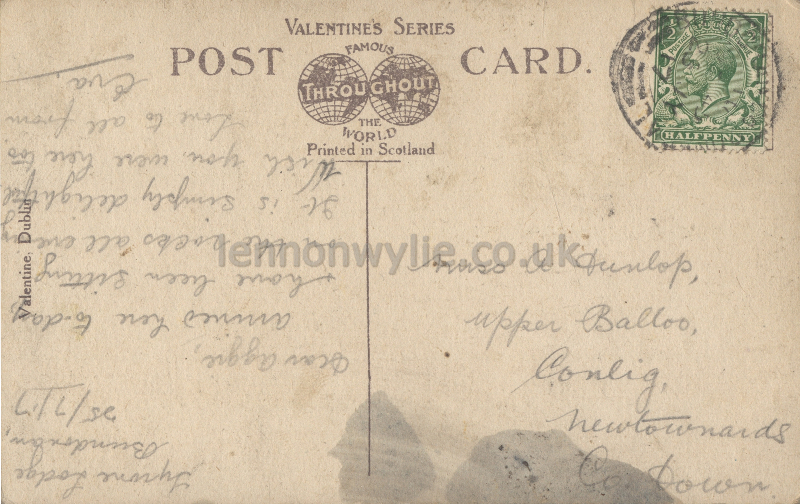 VALENTINES SERIES
POST CARD.
FAMOUS
THROUGHOUT
THE
WORLD
Printed in Scotland
HALFPENNY
Valentine, Dublin
lennonwylie.co.uk
Miss A Dunlop,
Upper Balloo,
Conlig,
Newtownards
Co. Down
Tyrone Lodge
Bundoran,
25/7/17
Dear Aggie,
arrived here to-day
& have been sitting
on the rocks all evening
It is simply delightful
Wish you were here too
Love to all from
Eva